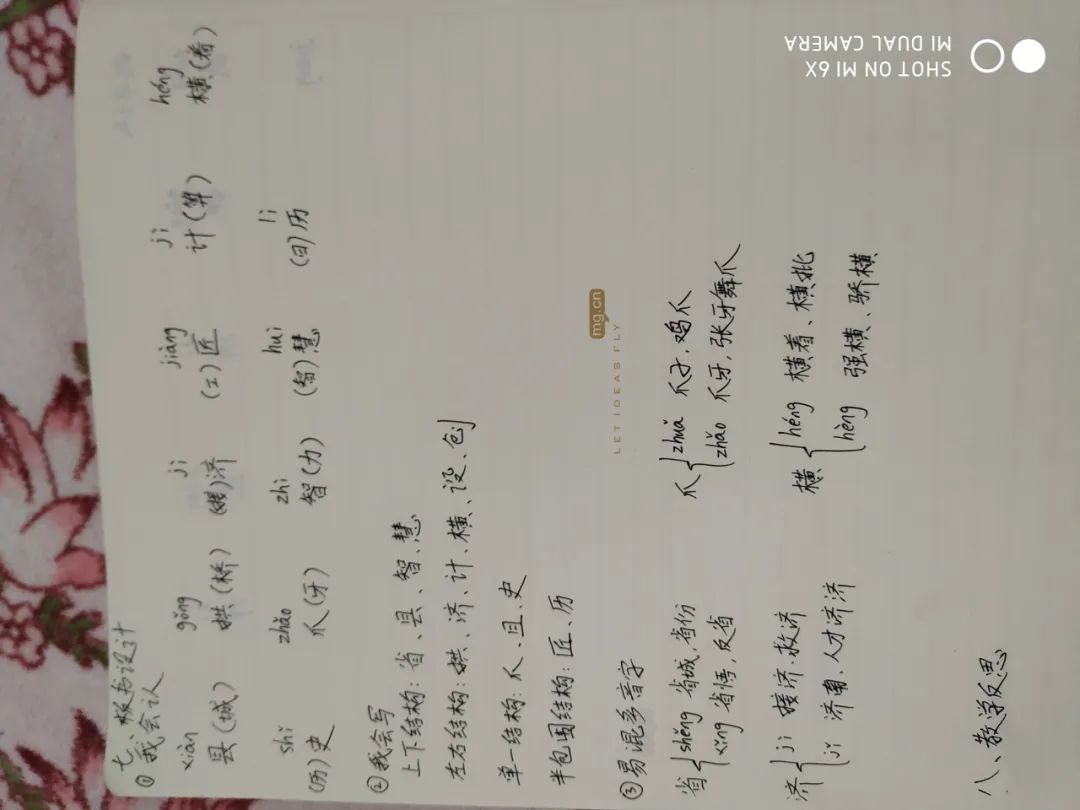 七、板书设计
①我会认
xiàn gǒng jì jiàng jì héng
县(城) 拱(桥) (接)济 (工)匠 计(算) 横(着)
shǐ zhǎo zhì huì lì
(历)史 爪(牙) 智(力) (智)慧 (日)历
②我会写
上下结构:省、县、智、慧
左右结构:拱、济、计、横、设、创
单一结构:爪、且、史
半包围结构:匠、历
③易混多音字
省 shěng 省城、省份
xǐng 省悟,反省
爪 zhuǎ 爪子,鸡爪
zhǎo 爪牙,张牙舞爪
济 jì 接济、救济
jǐ 济南、人才济济
横 héng 横着、横批
hèng 强横、骄横
八、教学反思
mg.cn
LET IDEAS FLY
SHOT ON MI 6X
MI DUAL CAMERA